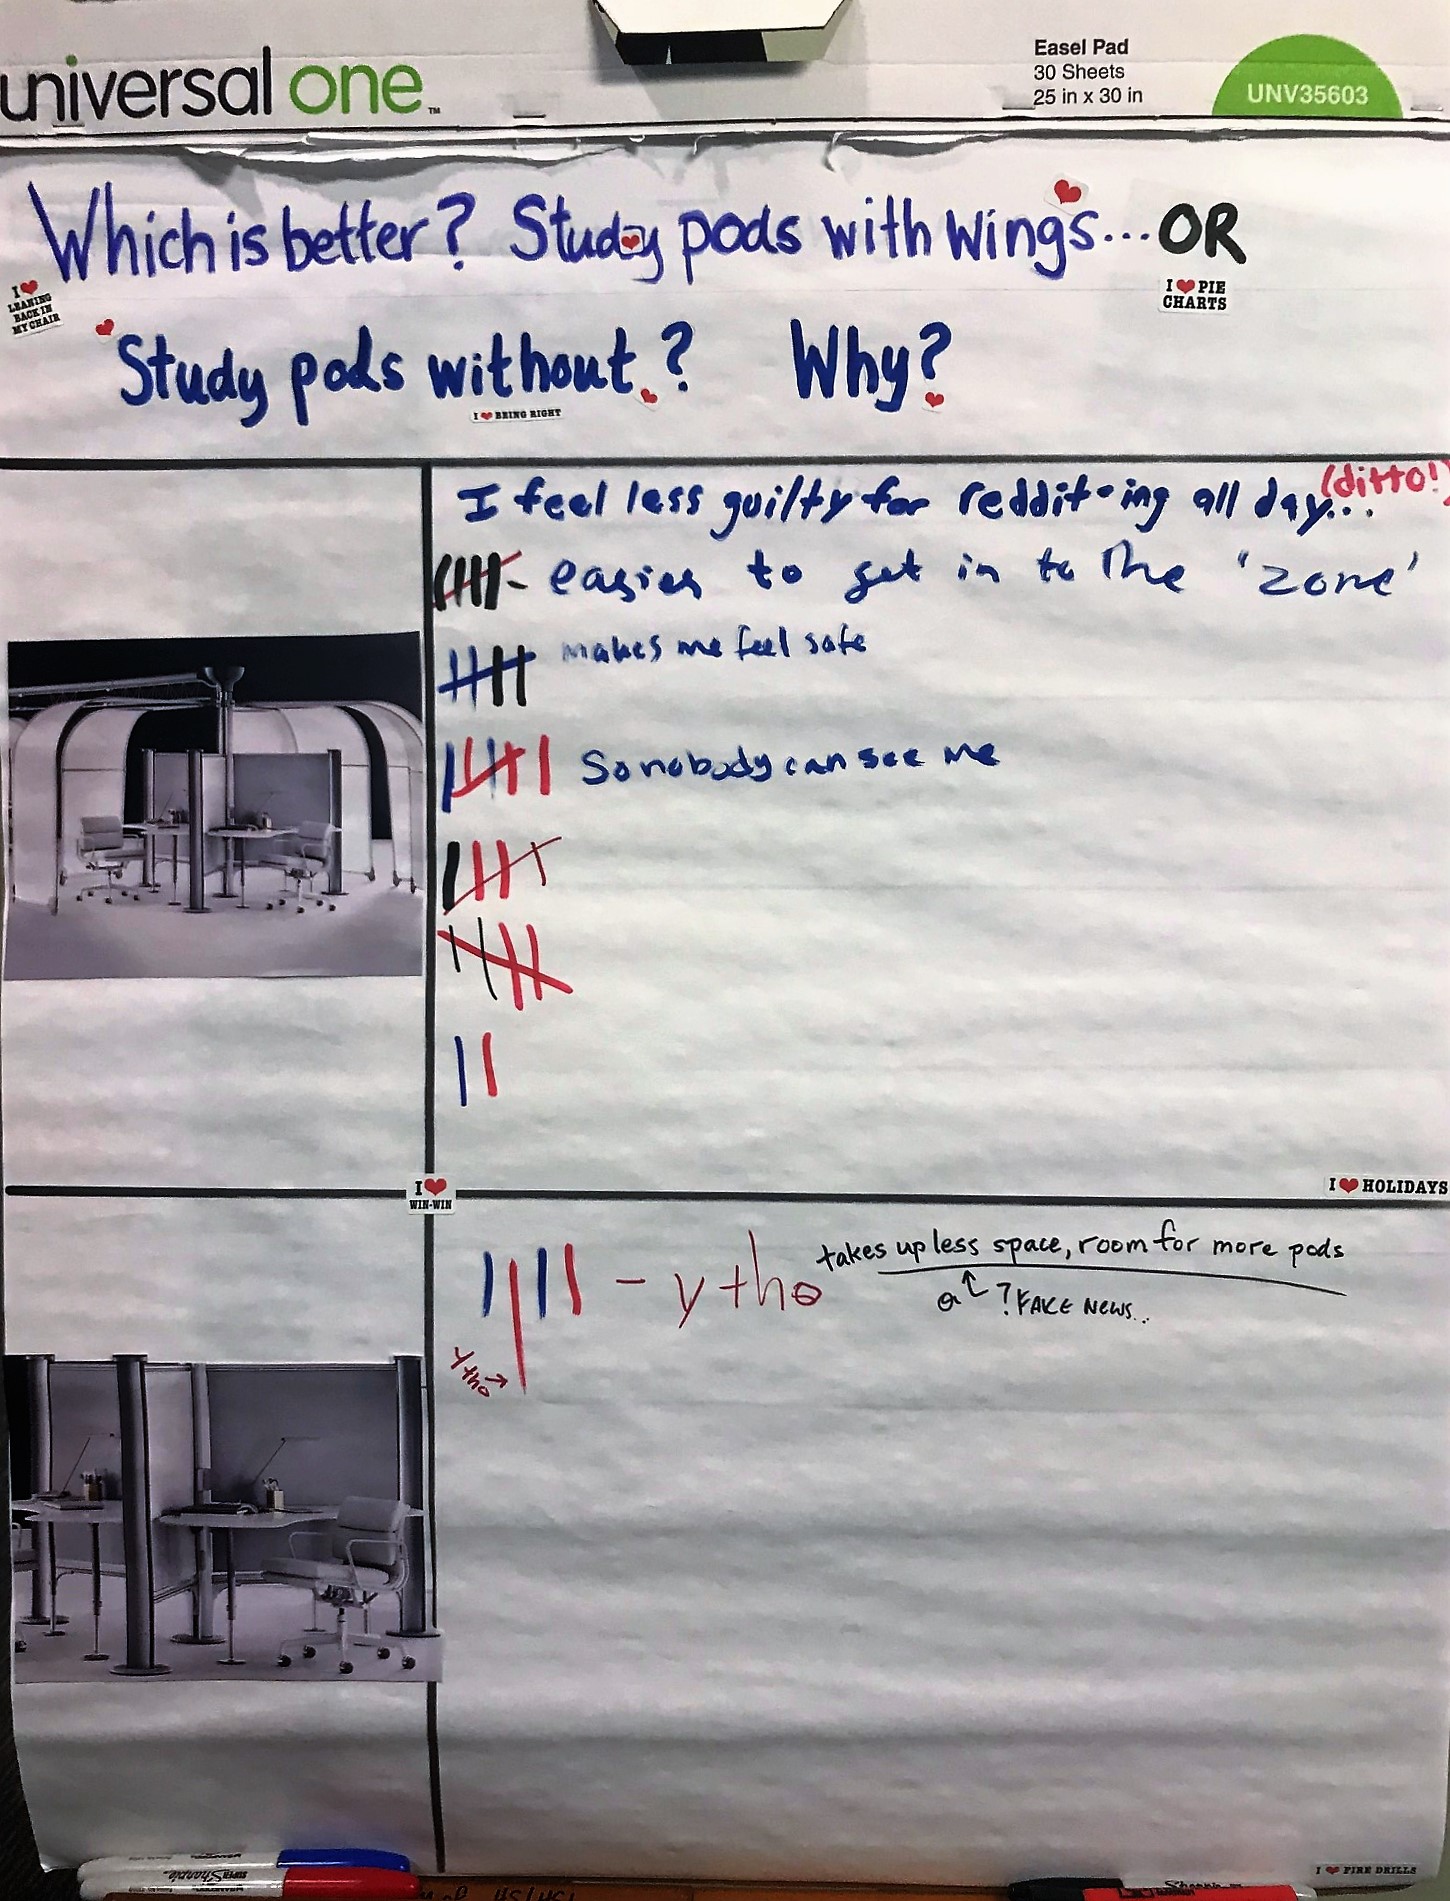 universal one™
Easel Pad
30 Sheets
25 in x 30 in
UNV35603
Which is better? Study pods with wings... OR
I ❤ LEANING BACK IN MY CHAIR
I ❤ PIE
CHARTS
Study pods without? Why?
I ❤ BEING RIGHT
I feel less guilty for reddit-ing all day... (ditto!)
- easier to get in to the 'zone'
makes me feel safe
So nobody can see me
I ❤
WIN-WIN
I ❤ HOLIDAYS
- y tho
takes up less space, room for more pods
? FAKE NEWS...
y tho →
I ❤ FIRE DRILLS
SUPER Sharpie
Sharpie